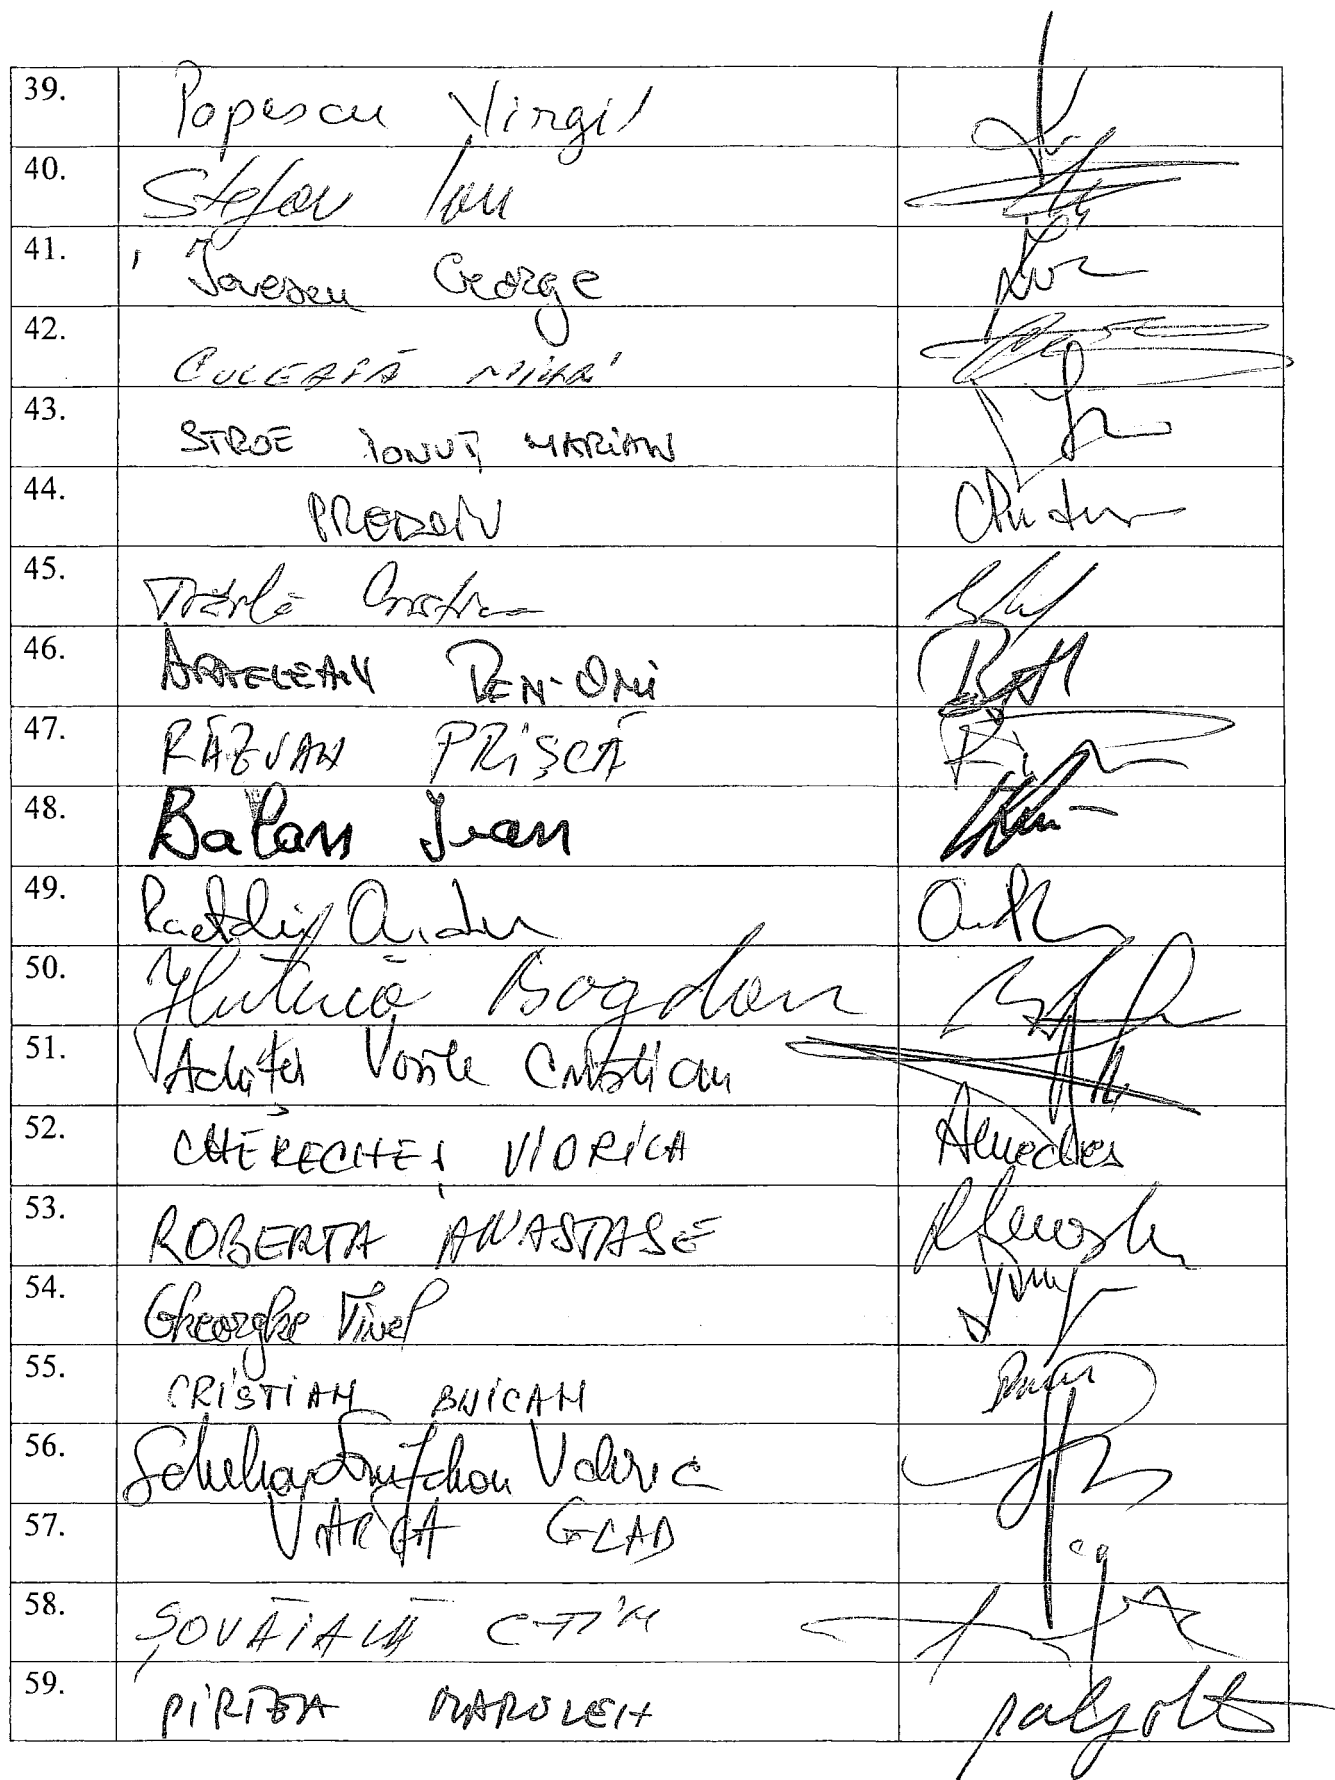 39. Popescu Virgil
40. Stefan Ion
41. Ionescu George
42. CULEAFĂ MIHAI
43. STROE IONUȚ MARIAN
44. PREDOIU
45. Cristina
46. ARDELEAN BEN-ONI
47. RĂZVAN PRIȘCĂ
48. Balan Ioan
49. Andrei
50. Huțucă Bogdan
51. Achiței Vasile Cristian
52. CHERECHEȘ VIORICA
53. ROBERTA ANASTASE
54. Gheorghe Tinel
55. CRISTIAN BUICAN
56. Schelean Valeria
57. VARGA GLAD
58. ȘOVĂIALĂ C-TIN
59. PIRTEA MARILEN